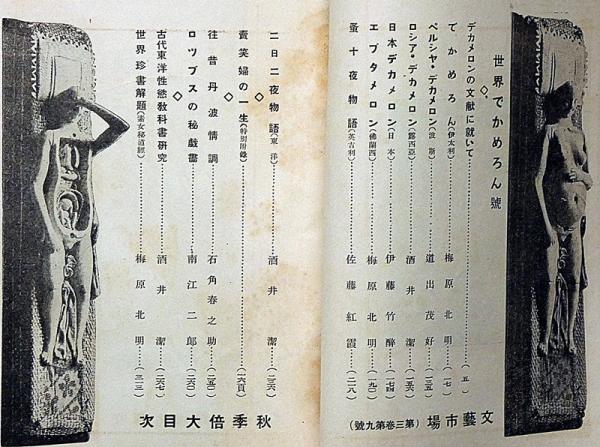 世界でかめろん號
◇
デカメロンの文献に就いて……（五）
でかめろん（伊太利）……梅原北明……（一七）
ペルシヤ・デカメロン（波斯）……道出茂好……（一三五）
ロシア・デカメロン（露西亞）……酒井潔……（一五六）
日本デカメロン（日本）……伊藤竹醉……（一七四）
エプタメロン（佛蘭西）……梅原北明……（一九〇）
蚤十夜物語（英吉利）……佐藤紅霞……（二一八）
文藝市場（第三卷第九號）
二日二夜物語（東洋）……酒井潔……（二三六）
◇
賣笑婦の一生（特別附錄）……（一六頁）
◇
往昔丹波情調……石角春之助……（二五〇）
ロツプスの秘戯畫……南江二郎……（二六〇）
◇
古代東洋性慾敎科書硏究……酒井潔……（二六七）
世界珍書解題（素女秘道經）……梅原北明……（三一三）
秋季倍大目次